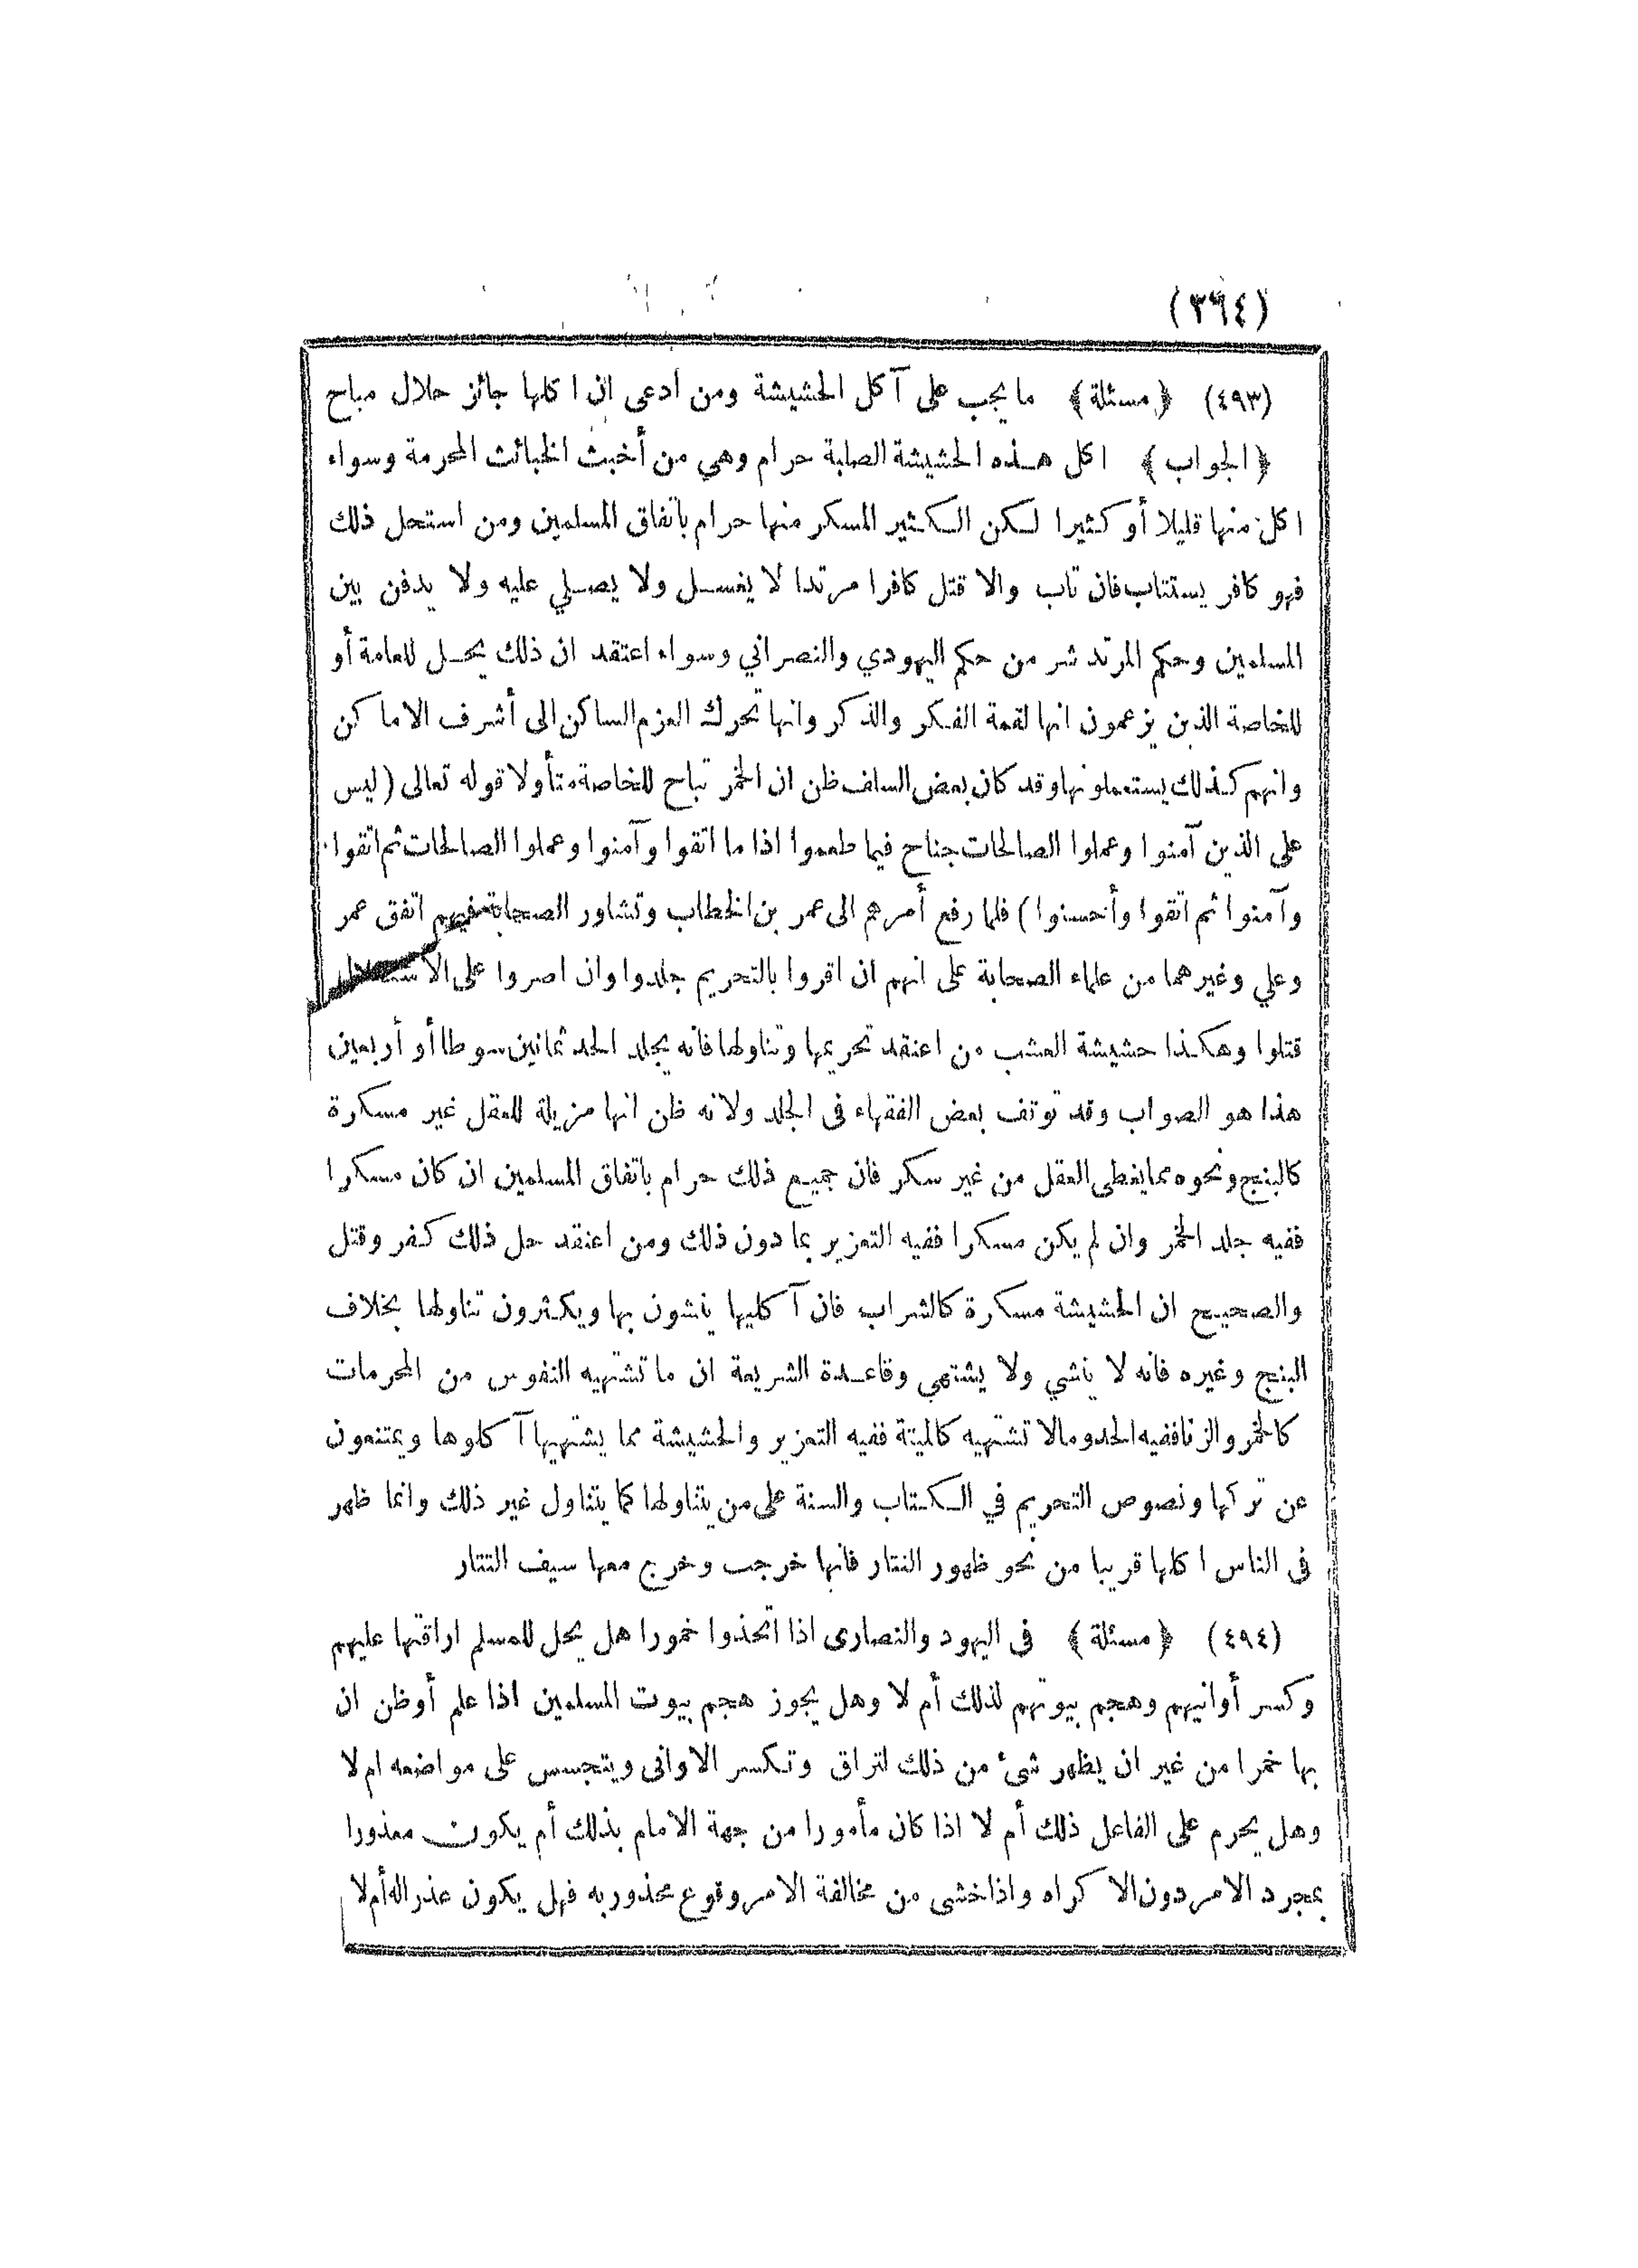 (٣٩٤)
(٤٩٣) ﴿مسئلة﴾ ما يجب على آكل الحشيشة ومن ادعى ان اكلها جائز حلال مباح
﴿الجواب﴾ اكل هذه الحشيشة الصلبة حرام وهي من أخبث الخبائث المحرمة وسواء
اكل منها قليلا أو كثيرا لكن الكثير المسكر منها حرام باتفاق المسلمين ومن استحل ذلك
فهو كافر يستتاب فان تاب والا قتل كافرا مرتدا لا يغسل ولا يصلي عليه ولا يدفن بين
المسلمين وحكم المرتد شر من حكم اليهودي والنصراني وسواء اعتقد ان ذلك يحل للعامة أو
للخاصة الذين يزعمون انها لقمة الفكر والذكر وانها تحرك العزم الساكن الى أشرف الاماكن
وانهم كذلك يستعملونها وقد كان بعض السلف ظن ان الخمر تباح للخاصة متأولا قوله تعالى (ليس
على الذين آمنوا وعملوا الصالحات جناح فيما طعموا اذا ما اتقوا وآمنوا وعملوا الصالحات ثم اتقوا
وآمنوا ثم اتقوا وأحسنوا) فلما رفع أمرهم الى عمر بن الخطاب وتشاور الصحابة فيهم اتفق عمر
وعلي وغيرهما من علماء الصحابة على انهم ان اقروا بالتحريم جلدوا وان اصروا على الاستحلال
قتلوا وهكذا حشيشة العشب من اعتقد تحريمها وتناولها فانه يجلد الحد ثمانين سوطا أو أربعين
هذا هو الصواب وقد توقف بعض الفقهاء فى الجلد ولانه ظن انها مزيلة للعقل غير مسكرة
كالبنج ونحوه مما يغطى العقل من غير سكر فان جميع ذلك حرام باتفاق المسلمين ان كان مسكرا
ففيه جلد الخمر وان لم يكن مسكرا ففيه التعزير بما دون ذلك ومن اعتقد حل ذلك كفر وقتل
والصحيح ان الحشيشة مسكرة كالشراب فان آكليها ينشون بها ويكثرون تناولها بخلاف
البنج وغيره فانه لا ينشي ولا يشتهي وقاعدة الشريعة ان ما تشتهيه النفوس من المحرمات
كالخمر والزنا ففيه الحد وما لا تشتهيه كالميتة ففيه التعزير والحشيشة مما يشتهيها آكلوها ويمتنعون
عن تركها ونصوص التحريم في الكتاب والسنة على من يتناولها كما يتناول غير ذلك وانما ظهر
فى الناس اكلها قريبا من نحو ظهور التتار فانها خرجت وخرج معها سيف التتار
(٤٩٤) ﴿مسئلة﴾ فى اليهود والنصارى اذا اتخذوا خمورا هل يحل للمسلم اراقتها عليهم
وكسر أوانيهم وهجم بيوتهم لذلك أم لا وهل يجوز هجم بيوت المسلمين اذا علم أو ظن ان
بها خمرا من غير ان يظهر شئ من ذلك لتراق وتكسر الاوانى ويتجسس على مواضعه ام لا
وهل يحرم على الفاعل ذلك أم لا اذا كان مأمورا من جهة الامام بذلك أم يكون معذورا
بمجرد الامر دون الاكراه واذا خشى من مخالفة الامر وقوع محذور به فهل يكون عذرا له أم لا